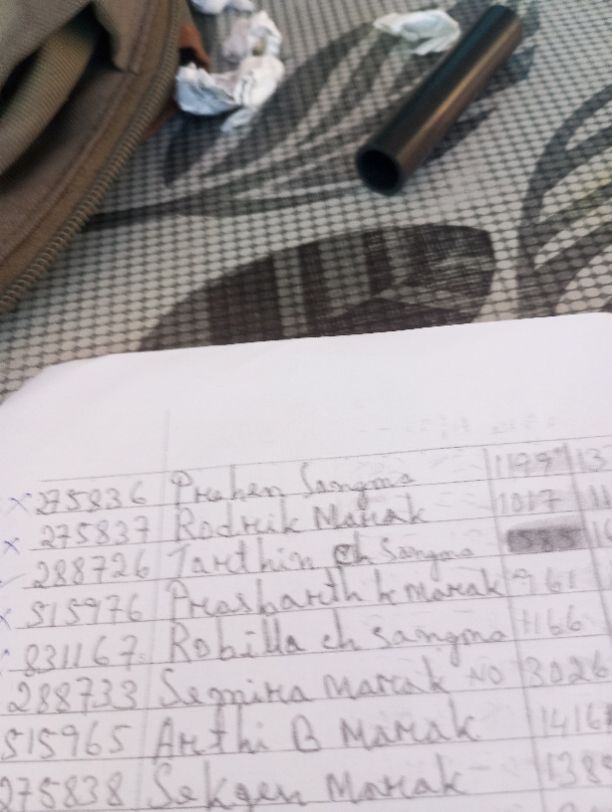 x 275836 Prohen Sangma 1199 13
x 275837 Rodrik Marak 1017 11
288726 Tarthin ch Sangma
x 515976 Prasharth k marak 961
831167 Robilla ch sangma 1166
288733 Semira Marak NO 3026
515965 Arthi B Marak 1416
275838 Sekgen Marak 1389